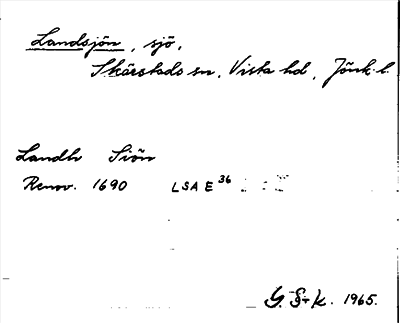 Landsjön, sjö,
Skärstads sn, Vista hd, Jönk. l.
Landh Siön
Renov. 1690 LSA E 36
G. S-k. 1965.